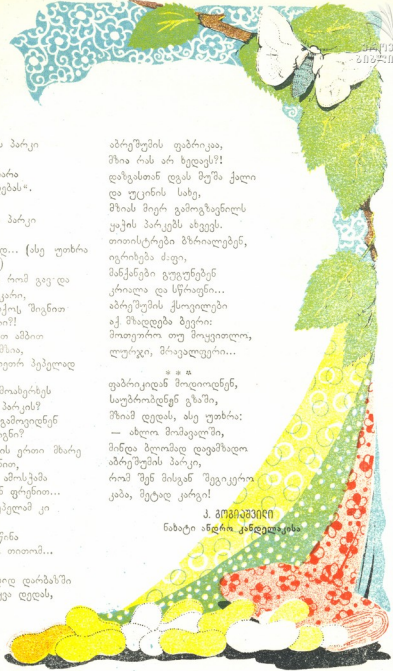 ს პარკი
არა
ებას“.
პარკი
დ... (ასე უთხრა
)
რომ გავ-და
კარი,
შიგნით
ი?!
თ ამბით
მზია,
ეთრ პეპელად
მოახერხეს
პარკის?
გამოვიდნენ
გნი?
ის ერთი მხარე
ნით,
ამოსქამა
ნ ფრენით...
ეპელამ კი
წინა
თითომ...
იდ დარბაზში
ყვა დედას,
აბრეშუმის ფაბრიკაა,
მზია რას არ ხედავს?!
დაზგასთან დგას მუშა ქალი
და უცინის სახე,
მზიას მიერ გამოგზავნილს
ყაჭის პარკებს ახვევს.
თითისტრები ბზრიალებენ,
იგრიხება ძაფი,
მანქანები გუგუნებენ
კრიალა და სწრაფნი...
აბრეშუმის ქსოვილები
აქ მზადდება ბევრი:
მოთეთრო თუ მოყვითლო,
ლურჯი, მრავალფერი...
* * *
ფაბრიკიდან მოდიოდნენ,
საუბრობდნენ გზაში,
მზიამ დედას, ასე უთხრა:
— ახლო მომავალში,
მინდა ბლომად დავამზადო
აბრეშუმის პარკი,
რომ შენ მისგან შეგიკერო
კაბა, მეტად კარგი!
კ. გოგიაშვილი
ნახატი ანდრო კანდელაკისა